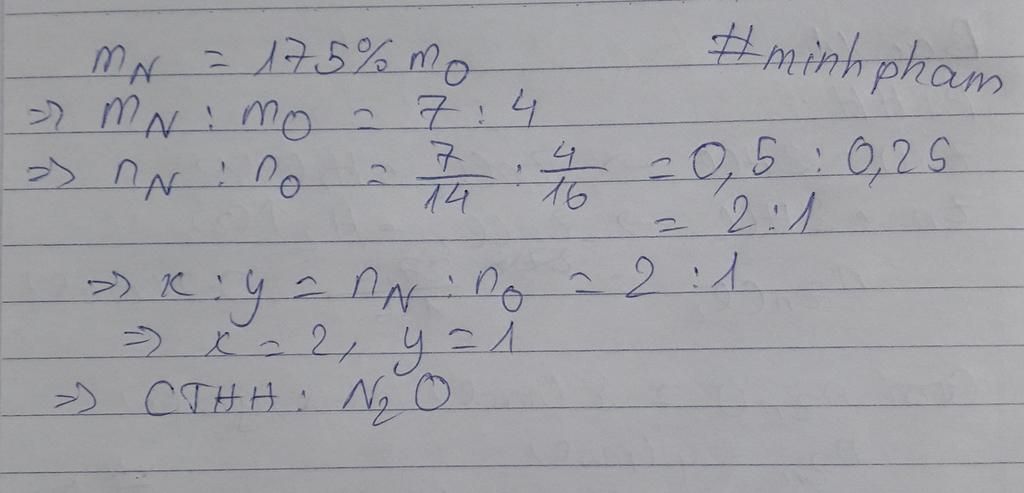 m_N = 175% m_O
#minhpham
=> m_N : m_O = 7 : 4
=> n_N : n_O = 7/14 : 4/16 = 0,5 : 0,25
= 2 : 1
=> x : y = n_N : n_O = 2 : 1
=> x = 2, y = 1
=> CTHH : N₂O